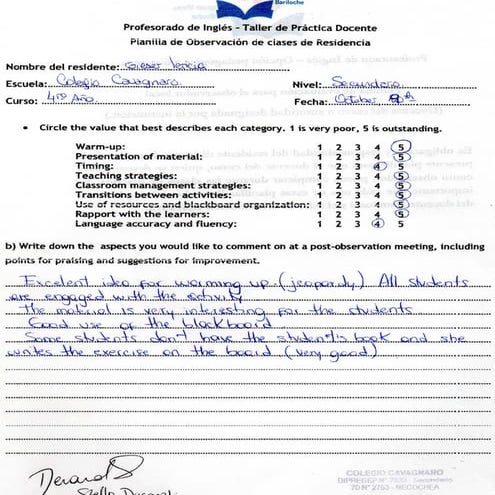 Bariloche
Profesorado de Inglés - Taller de Práctica Docente
Planilla de Observación de clases de Residencia
Nombre del residente:
Escuela: Colegio Cavagnaro Nivel: Secundario
Curso: 4to Año. Fecha: October
• Circle the value that best describes each category. 1 is very poor, 5 is outstanding.
Warm-up: 1 2 3 4 5
Presentation of material: 1 2 3 4 5
Timing: 1 2 3 4 5
Teaching strategies: 1 2 3 4 5
Classroom management strategies: 1 2 3 4 5
Transitions between activities: 1 2 3 4 5
Use of resources and blackboard organization: 1 2 3 4 5
Rapport with the learners: 1 2 3 4 5
Language accuracy and fluency: 1 2 3 4 5
b) Write down the aspects you would like to comment on at a post-observation meeting, including
points for praising and suggestions for improvement.
Excelent idea for warming up. (jeopardy) All students
are engaged with the activity
The material is very interesting for the students
Good use of the blackboard
Some students don't have the student's book and she
writes the exercise on the board. (very good)
COLEGIO CAVAGNARO
NECOCHEA